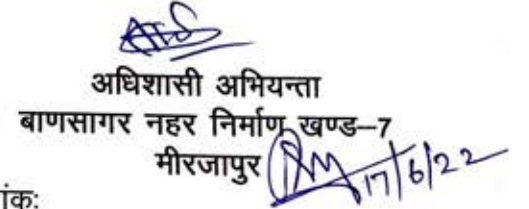 अधिशासी अभियन्ता
बाणसागर नहर निर्माण खण्ड–7
मीरजापुर
17/6/22
ांकः